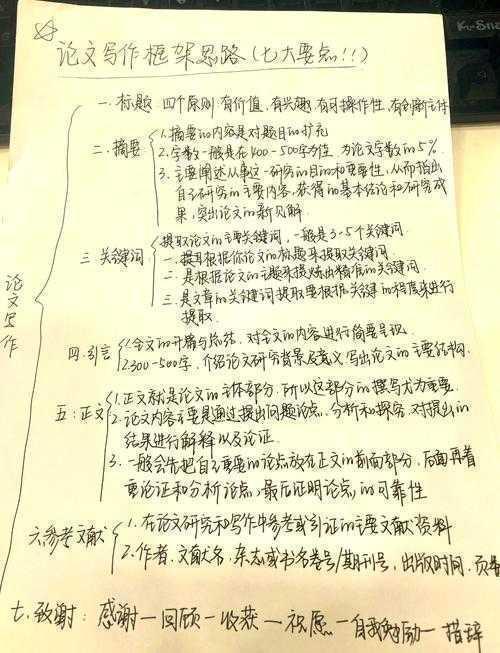 论文写作框架思路(七大要点!!)
论文写作
一.标题 四个原则:有价值,有兴趣,有可操作性,有创新主体
二.摘要
1.摘要的内容是对题目的扩充
2.字数一般是在400-500字为佳,为论文字数的5%.
3.主要阐述从事这一研究的目的和重要性,从而指出
自己研究的主要内容,获得的基本结论和研究成
果,突出论文的新见解.
三.关键词
提取论文的主要关键词,一般是3-5个关键词.
一.提取根据你论文的标题来提取关键词
二.是根据论文的主题来提炼出精准的关键词.
三.是文章的关键词提取要根据关键的程度来进行
提取.
四.引言
1.全文的开篇与总结,对全文的内容进行简要呈现.
2.300-500字,介绍论文研究背景及意义,写出论文的主要结构.
五:正文
1.正文就是论文的主体部分,所以这部分的撰写尤为重要.
2.论文内容主要是通过提出问题论点,分析和探究,对提出的
结果进行解释以及论证.
3.一般会先把自己重要的论点放在正文的前面部分,后面再着
重论证和分析论点,最后证明论点的可靠性
六.参考文献
1.在论文研究和写作中参考或引证的主要文献资料
2.作者,文献名,杂志或书名卷号/期刊号,出版时间,页
七.致谢: 感谢一回顾一收获一祝愿一自我勉励一措辞